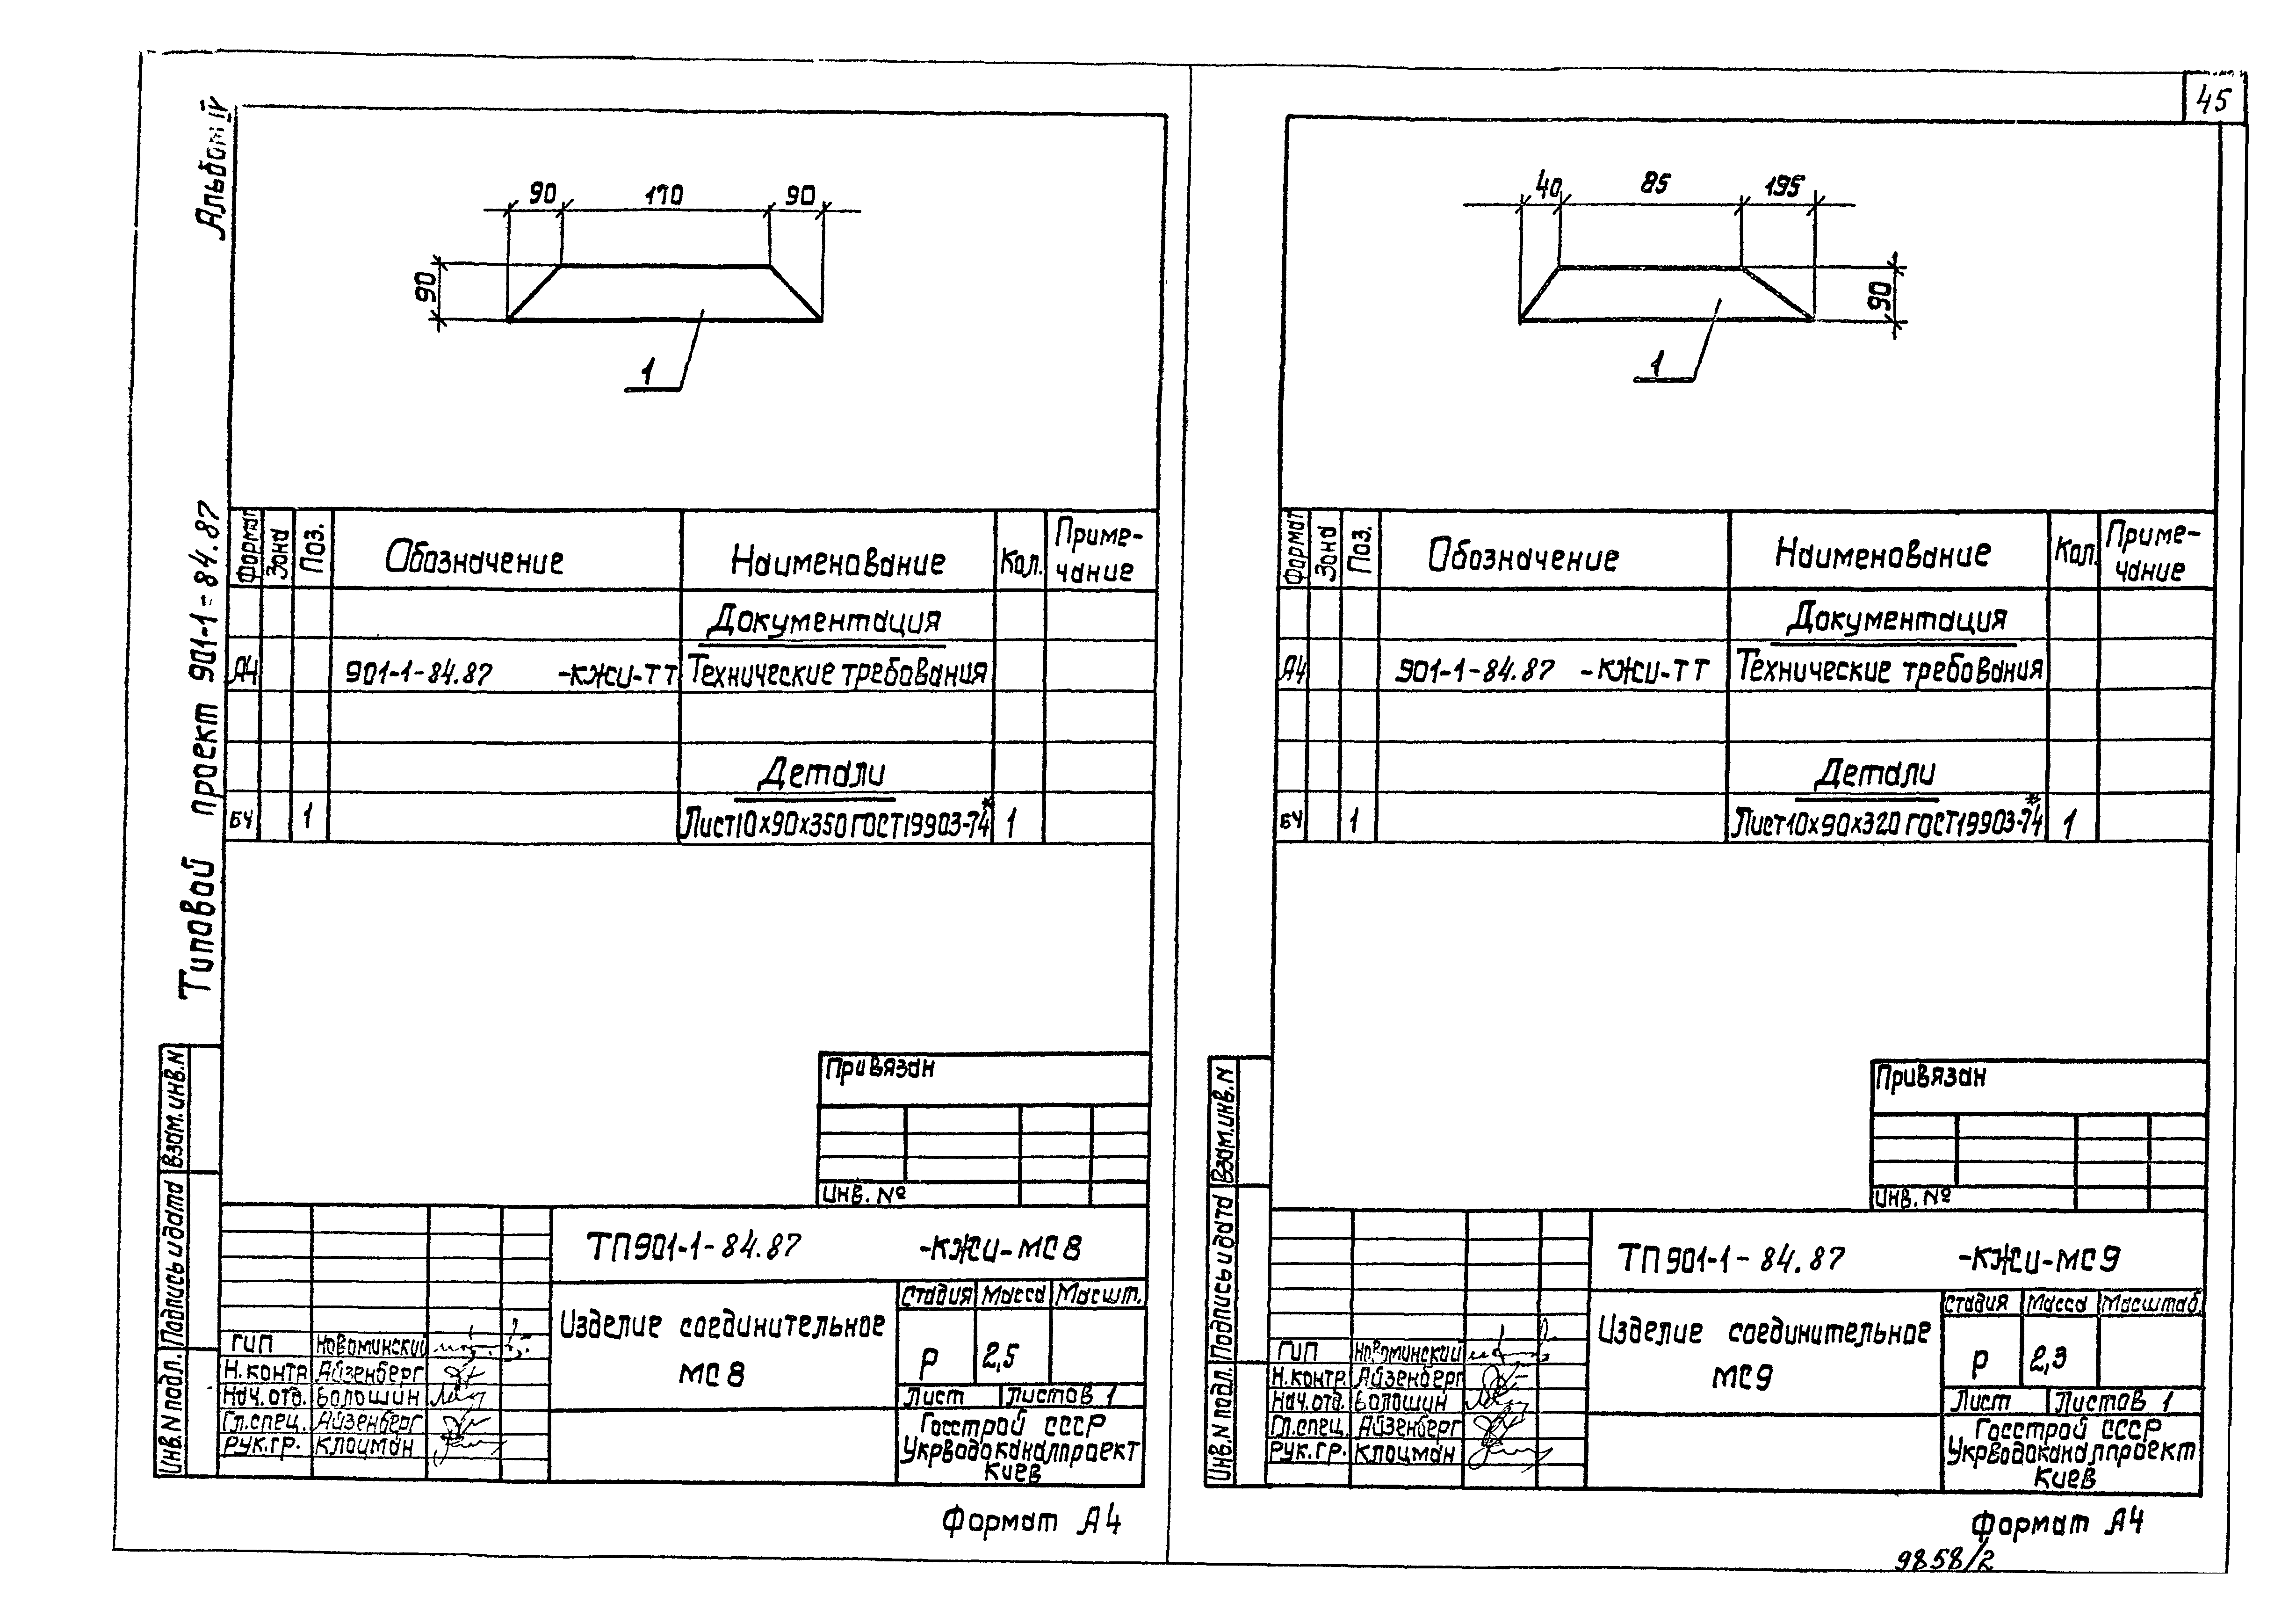 45
Альбом IV
Типовой проект 901-1-84.87
90 170 90
90
1
Формат Зона Поз. Обозначение Наименование Кол. Приме-
чание
Документация
А4 901-1-84.87 -КЖИ-ТТ Технические требования
Детали
БЧ 1 Лист10х90х350 ГОСТ19903-74* 1
Привязан
Инв. №
ТП901-1-84.87 -КЖИ-МС8
Изделие соединительное
МС8
Стадия Масса Масшт.
Р 2,5
Лист Листов 1
Госстрой СССР
Укрводоканалпроект
Киев
ГИП Новоминский
Н.контр Айзенберг
Нач.отд. Волошин
Гл.спец. Айзенберг
Рук.гр. Клоцман
Инв.N подл. Подпись и дата Взам.инв.N
Формат А4
40 85 195
90
1
Формат Зона Поз. Обозначение Наименование Кол. Приме-
чание
Документация
А4 901-1-84.87 -КЖИ-ТТ Технические требования
Детали
БЧ 1 Лист10х90х320 ГОСТ19903-74* 1
Привязан
Инв. №
ТП901-1-84.87 -КЖИ-МС9
Изделие соединительное
МС9
Стадия Масса Масштаб.
Р 2,3
Лист Листов 1
Госстрой СССР
Укрводоканалпроект
Киев
ГИП Новоминский
Н.контр. Айзенберг
Нач.отд. Волошин
Гл.спец. Айзенберг
Рук.гр. Клоцман
Инв.N подл. Подпись и дата Взам.инв.N
Формат А4
9858/2